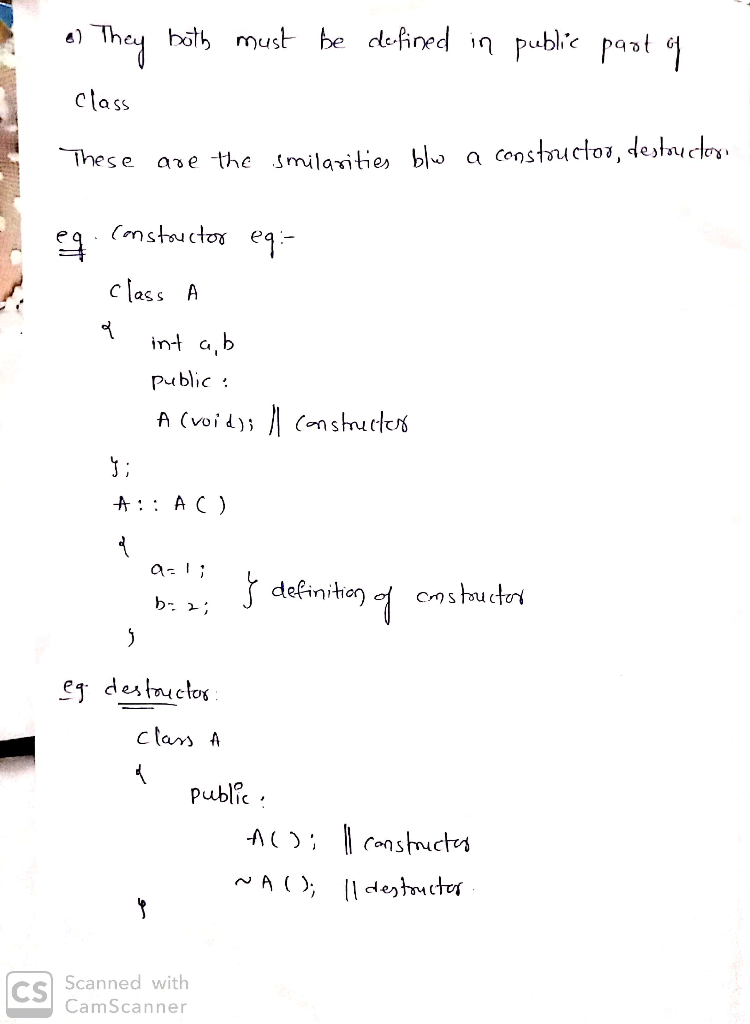 e) They both must be defined in public part of
class
These are the smilarities b/w a constructor, destructor.
eg. Constructor eg:-
class A
{
int a,b
public :
A (void); // Constructor
};
A : : A ( )
{
a=1;
b=2; } definition of constructor
}
eg destructor:
class A
{
public :
A( ); // constructor
~ A ( ); // destructor.
}
CS Scanned with
CamScanner